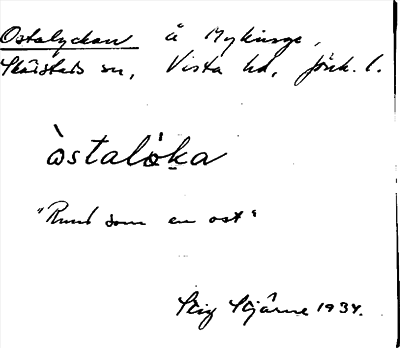 Ostalyckan å Mykinge,
Skärstads sn, Vista hd, Jönk. l.
òstalø̀ḵa
"Rund som en ost"
Stig Stjärne 1934.